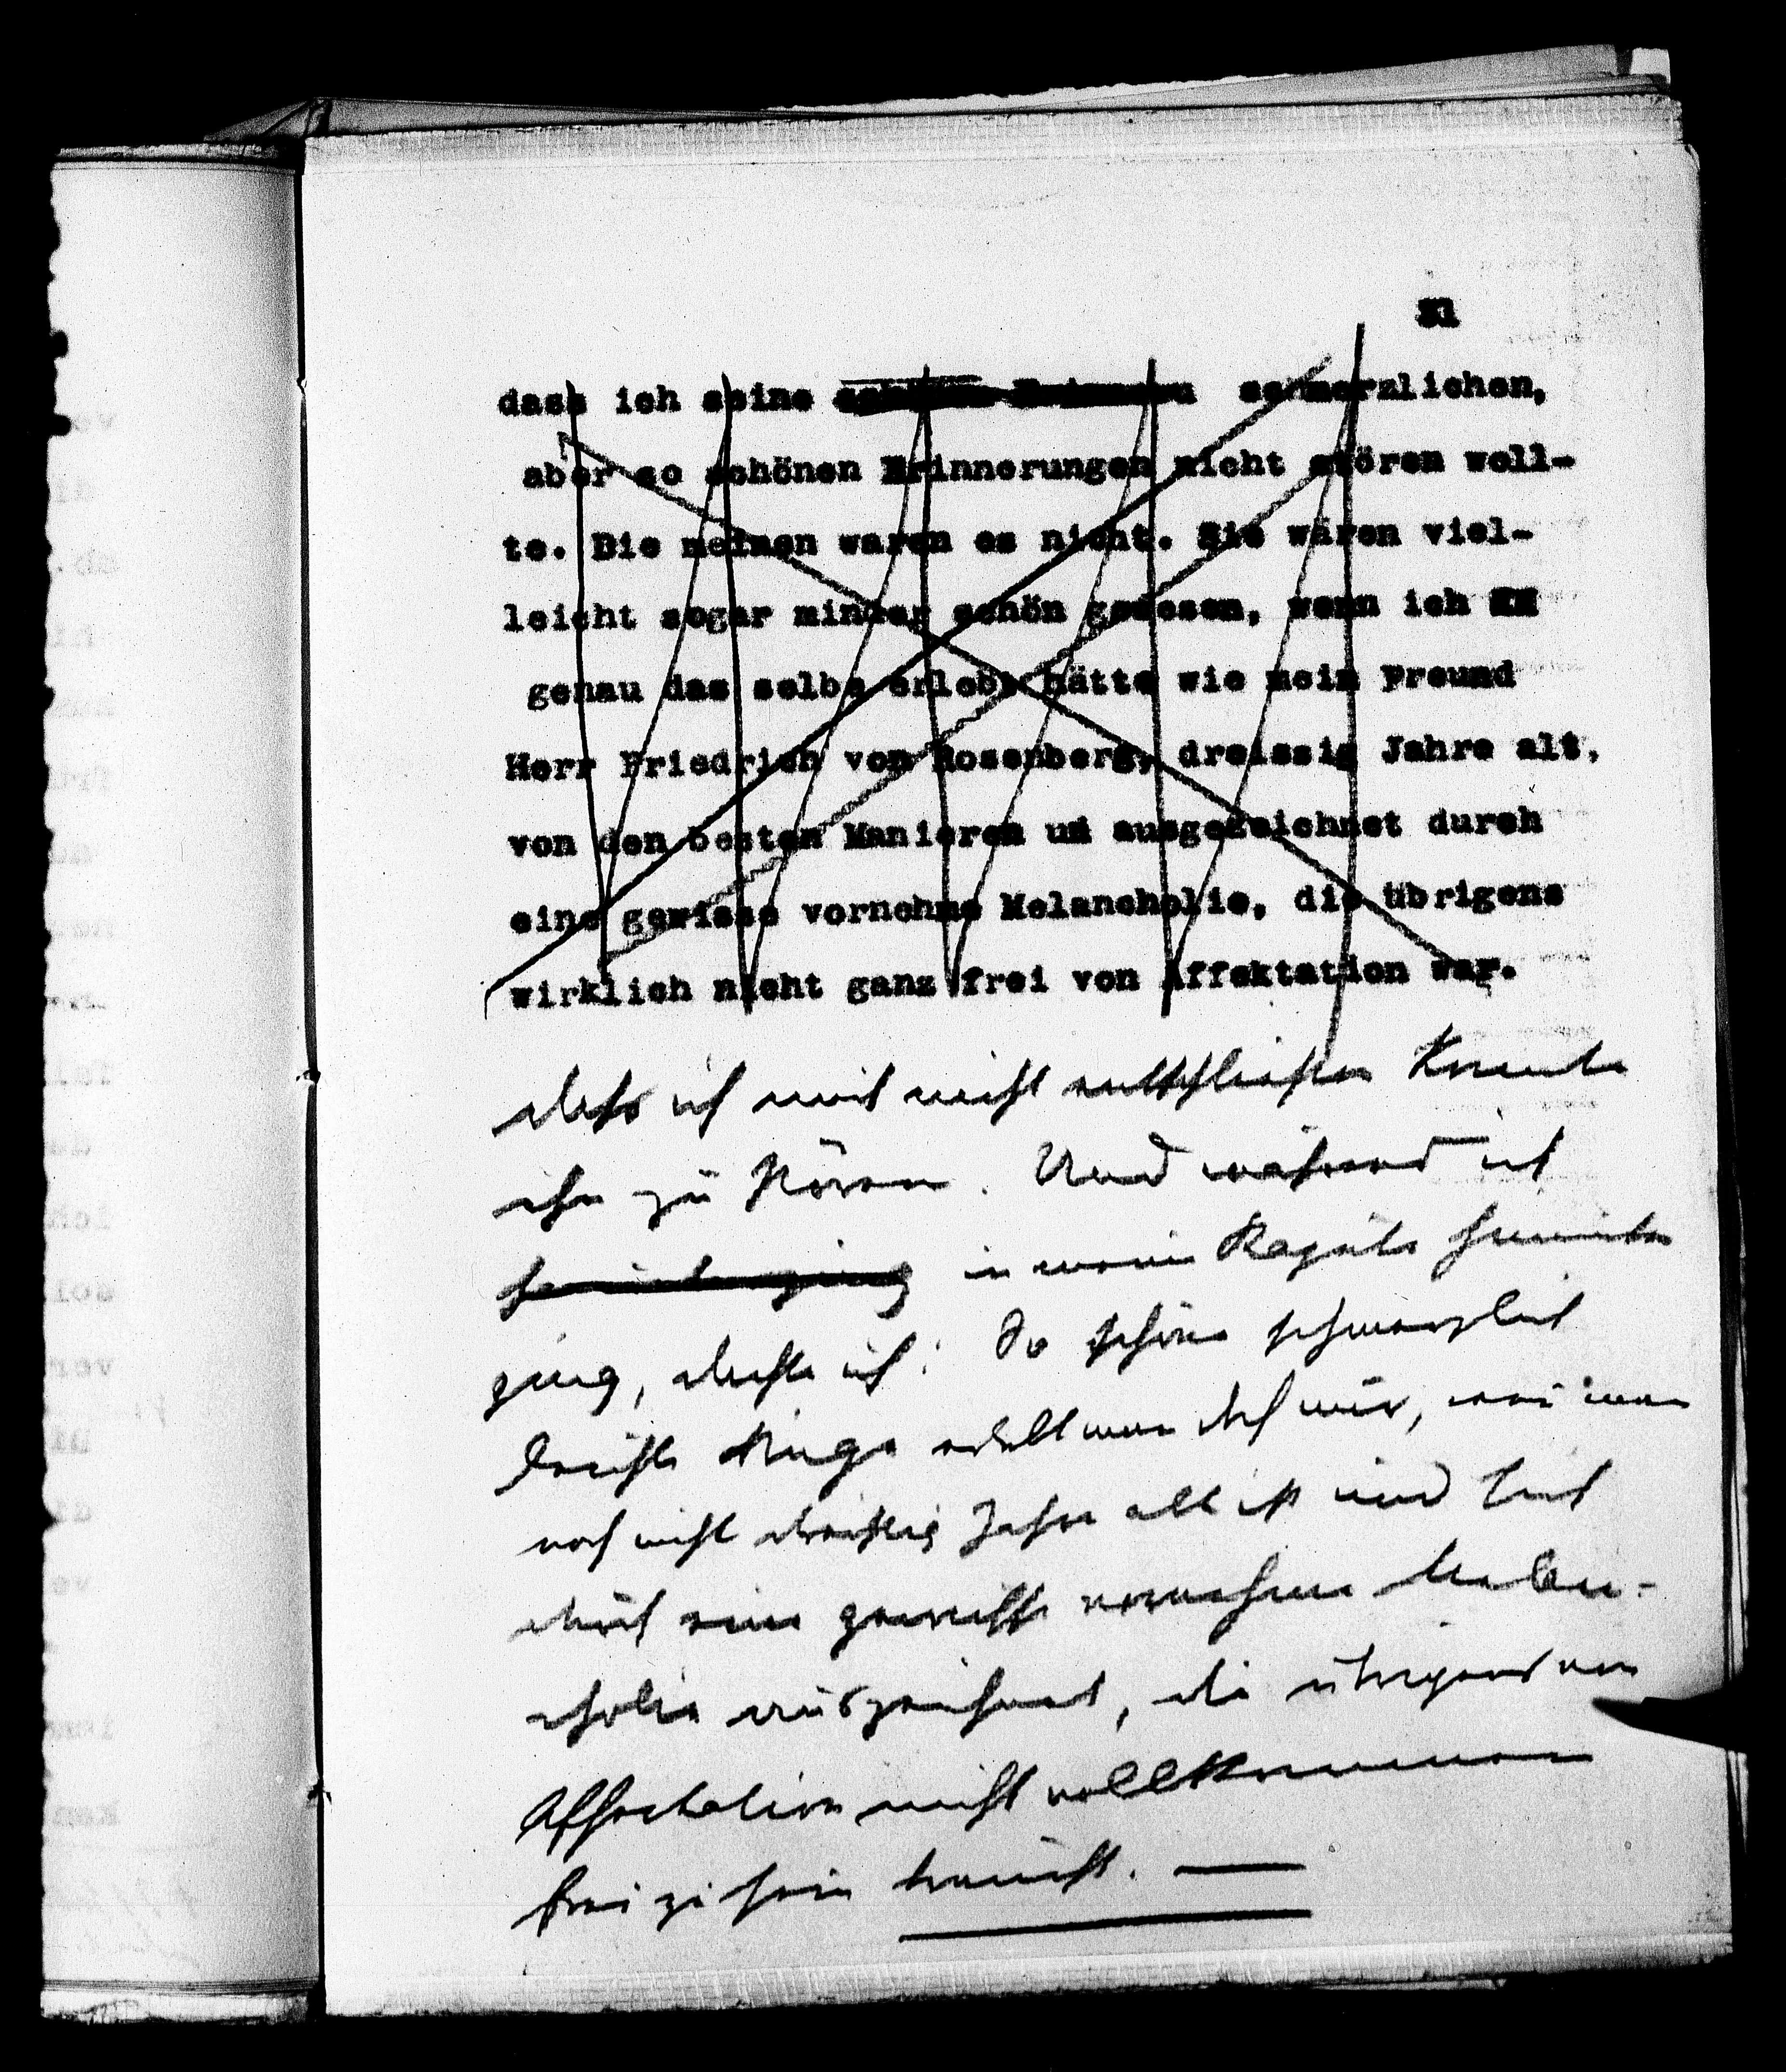 31
dass ich seine schmerzlichen,
aber so schönen Erinnerungen nicht stören woll-
te. Die meinen waren es nicht. Sie wären viel-
leicht sogar minder schön gewesen, wenn ich
genau das selbe erlebt hätte wie mein Freund
Herr Friedrich von Rosenberg, dreissig Jahre alt,
von den besten Manieren un ausgezeichnet durch
eine gewisse vornehme Melancholie, die übrigens
wirklich nicht ganz frei von Affektation war.
dass ich mich nicht entschliessen konnte
ihn zu stören. Und während ich
hinunterging in meine Kajüte hinunter
ging, dachte ich: So schöne schmerzlich
Dinge erlebt man doch nur, wenn man
noch nicht dreissig Jahre alt ist und sich
durch eine gewisse vornehme Melan-
cholie auszeichnet, die übrigens von
Affectation nicht vollkommen
frei zu sein braucht.